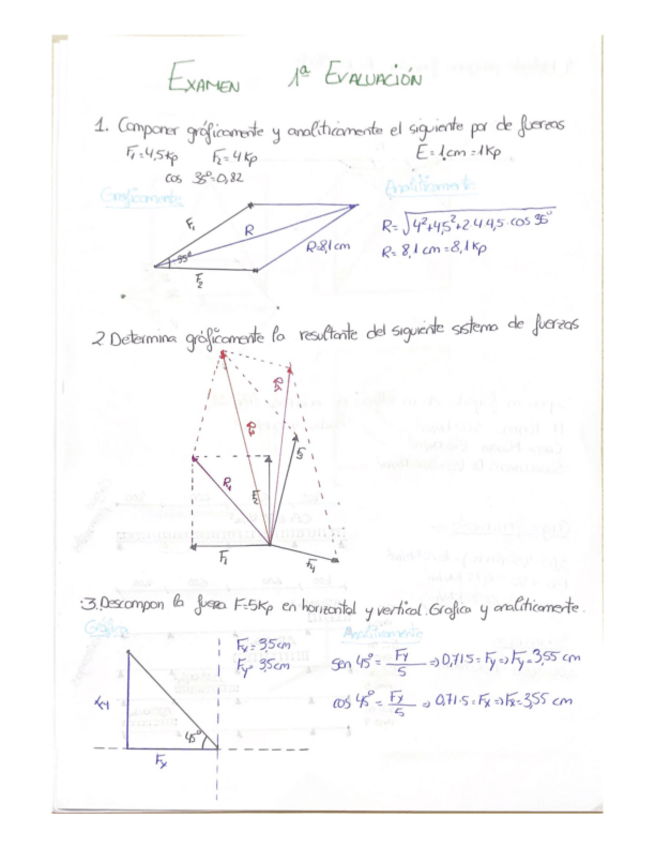 EXAMEN 1ª EVALUACIÓN
1. Componer gráficamente y analíticamente el siguiente par de fuerzas
F₁=4,5Kp F₂=4Kp E=1cm=1Kp
cos 35º=0,82
Gráficamente
Analíticamente
F₁
R
35º
F₂
R=8,1cm
R=√4²+4,5²+2·4·4,5·cos 35º
R=8,1 cm=8,1Kp
2. Determina gráficamente la resultante del siguiente sistema de fuerzas
R₁
F₂
F₃
F₁
F₄
3. Descompon la fuerza F=5Kp en horizontal y vertical. Grafica y analíticamente.
Gráfica
Analíticamente
Fx=3,5cm
Fy=3,5cm
sen 45º=Fy/5⇒0,71·5=Fy⇒Fy=3,55 cm
cos 45º=Fy/5⇒0,71·5=Fx⇒Fx=3,55 cm
Fy
45º
Fx